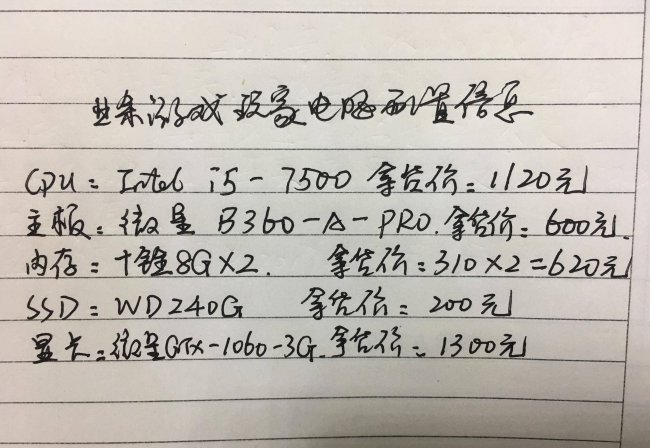 业余游戏玩家电脑配置信息
CPU: Intel i5-7500 拿货价:1120元
主板:微星 B360-A-PRO. 拿货价:600元.
内存:十铨8GX2. 拿货价:310×2=620元
SSD:WD240G 拿货价:200元
显卡:微星GTX-1060-3G.拿货价:1300元